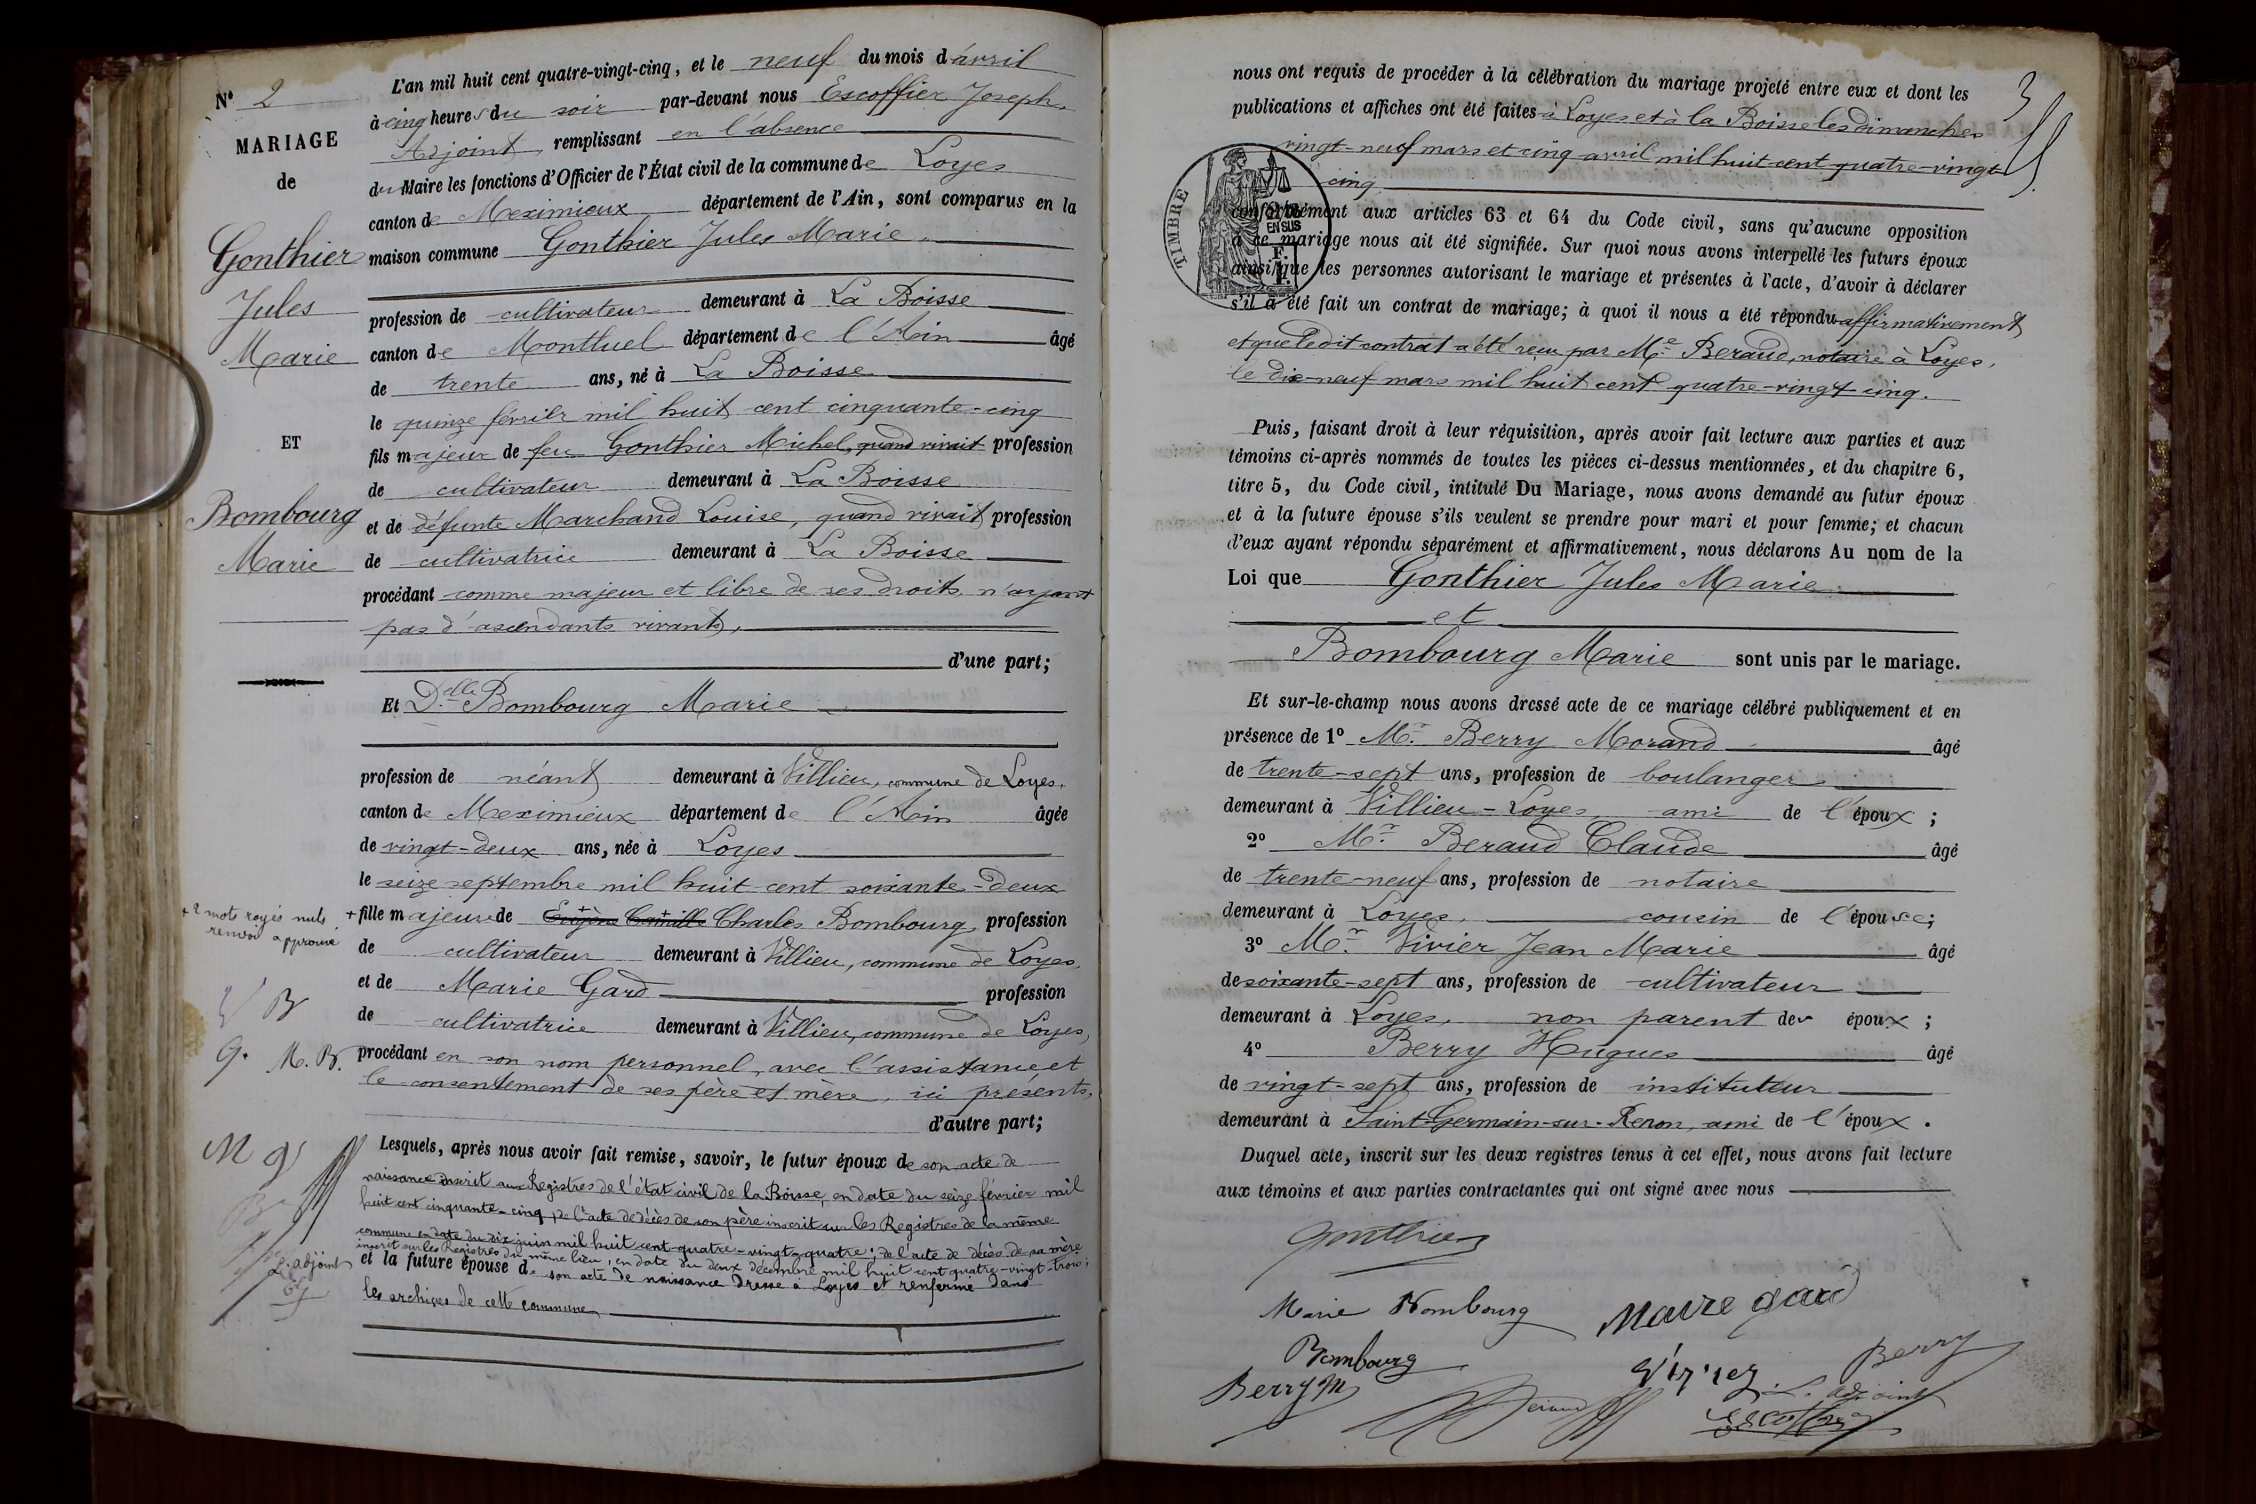 N° 2
MARIAGE
de
Gonthier
Jules
Marie
ET
Bombourg
Marie
+ 2 mots rayés nuls
renvoi approuvé
B
G. M. B.
M g
L'adjoint
L'an mil huit cent quatre-vingt-cinq, et le neuf du mois d'avril
à cinq heures du soir par-devant nous Escoffier Joseph,
Adjoint remplissant en l'absence
du Maire les fonctions d'Officier de l'État civil de la commune de Loyes
canton de Meximieux département de l'Ain, sont comparus en la
maison commune Gonthier Jules Marie
profession de cultivateur demeurant à La Boisse
canton de Montluel département de l'Ain âgé
de trente ans, né à La Boisse
le quinze février mil huit cent cinquante-cinq
fils majeur de feu Gonthier Michel, quand vivait profession
de cultivateur demeurant à La Boisse
et de défunte Marchand Louise, quand vivait profession
de cultivatrice demeurant à La Boisse
procédant comme majeur et libre de ses droits n'ayant
pas d'ascendants vivants,
d'une part;
Et Delle Bombourg Marie
profession de néant demeurant à Villieu, commune de Loyes,
canton de Meximieux département de l'Ain âgée
de vingt-deux ans, née à Loyes
le seize septembre mil huit cent soixante-deux
+ fille majeure de Eugène Camille Charles Bombourg, profession
de cultivateur demeurant à Villieu, commune de Loyes,
et de Marie Gard profession
de cultivatrice demeurant à Villieu, commune de Loyes,
procédant en son nom personnel, avec l'assistance et
le consentement de ses père et mère, ici présents,
d'autre part;
Lesquels, après nous avoir fait remise, savoir, le futur époux de son acte de
naissance inscrit aux Registres de l'état civil de la Boisse, en date du seize février mil
huit cent cinquante-cinq, de l'acte de décès de son père inscrit sur les Registres de la même
commune en date du dix juin mil huit cent quatre-vingt-quatre; de l'acte de décès de sa mère
inscrit sur les Registres du même lieu, en date du deux décembre mil huit cent quatre-vingt-trois;
et la future épouse de son acte de naissance dressé à Loyes et renfermé dans
les archives de cette commune
3
nous ont requis de procéder à la célébration du mariage projeté entre eux et dont les
publications et affiches ont été faites à Loyes et à la Boisse les dimanches
vingt-neuf mars et cinq avril mil huit cent quatre-vingt-
cinq
TIMBRE
EN SUS
conformément aux articles 63 et 64 du Code civil, sans qu'aucune opposition
à ce mariage nous ait été signifiée. Sur quoi nous avons interpellé les futurs époux
ainsi que les personnes autorisant le mariage et présentes à l'acte, d'avoir à déclarer
s'il a été fait un contrat de mariage; à quoi il nous a été répondu affirmativement
et que ledit contrat a été reçu par Me Beraud, notaire à Loyes,
le dix-neuf mars mil huit cent quatre-vingt cinq.
Puis, faisant droit à leur réquisition, après avoir fait lecture aux parties et aux
témoins ci-après nommés de toutes les pièces ci-dessus mentionnées, et du chapitre 6,
titre 5, du Code civil, intitulé Du Mariage, nous avons demandé au futur époux
et à la future épouse s'ils veulent se prendre pour mari et pour femme; et chacun
d'eux ayant répondu séparément et affirmativement, nous déclarons Au nom de la
Loi que Gonthier Jules Marie
et
Bombourg Marie sont unis par le mariage.
Et sur-le-champ nous avons dressé acte de ce mariage célébré publiquement et en
présence de 1° Mr. Berry Morand âgé
de trente-sept ans, profession de boulanger
demeurant à Villieu-Loyes, ami de l'époux;
2° Mr. Beraud Claude âgé
de trente-neuf ans, profession de notaire
demeurant à Loyes, cousin de l'épouse;
3° Mr. Vivier Jean Marie âgé
de soixante-sept ans, profession de cultivateur
demeurant à Loyes, non parent des époux;
4° Berry Hugues âgé
de vingt-sept ans, profession de instituteur
demeurant à Saint-Germain-sur-Renon, ami de l'époux.
Duquel acte, inscrit sur les deux registres tenus à cet effet, nous avons fait lecture
aux témoins et aux parties contractantes qui ont signé avec nous
Gonthier
Marie Bombourg Marie gard
Bombourg Vivier Berry
Berry M Beraud L'adjoint
Escoffier